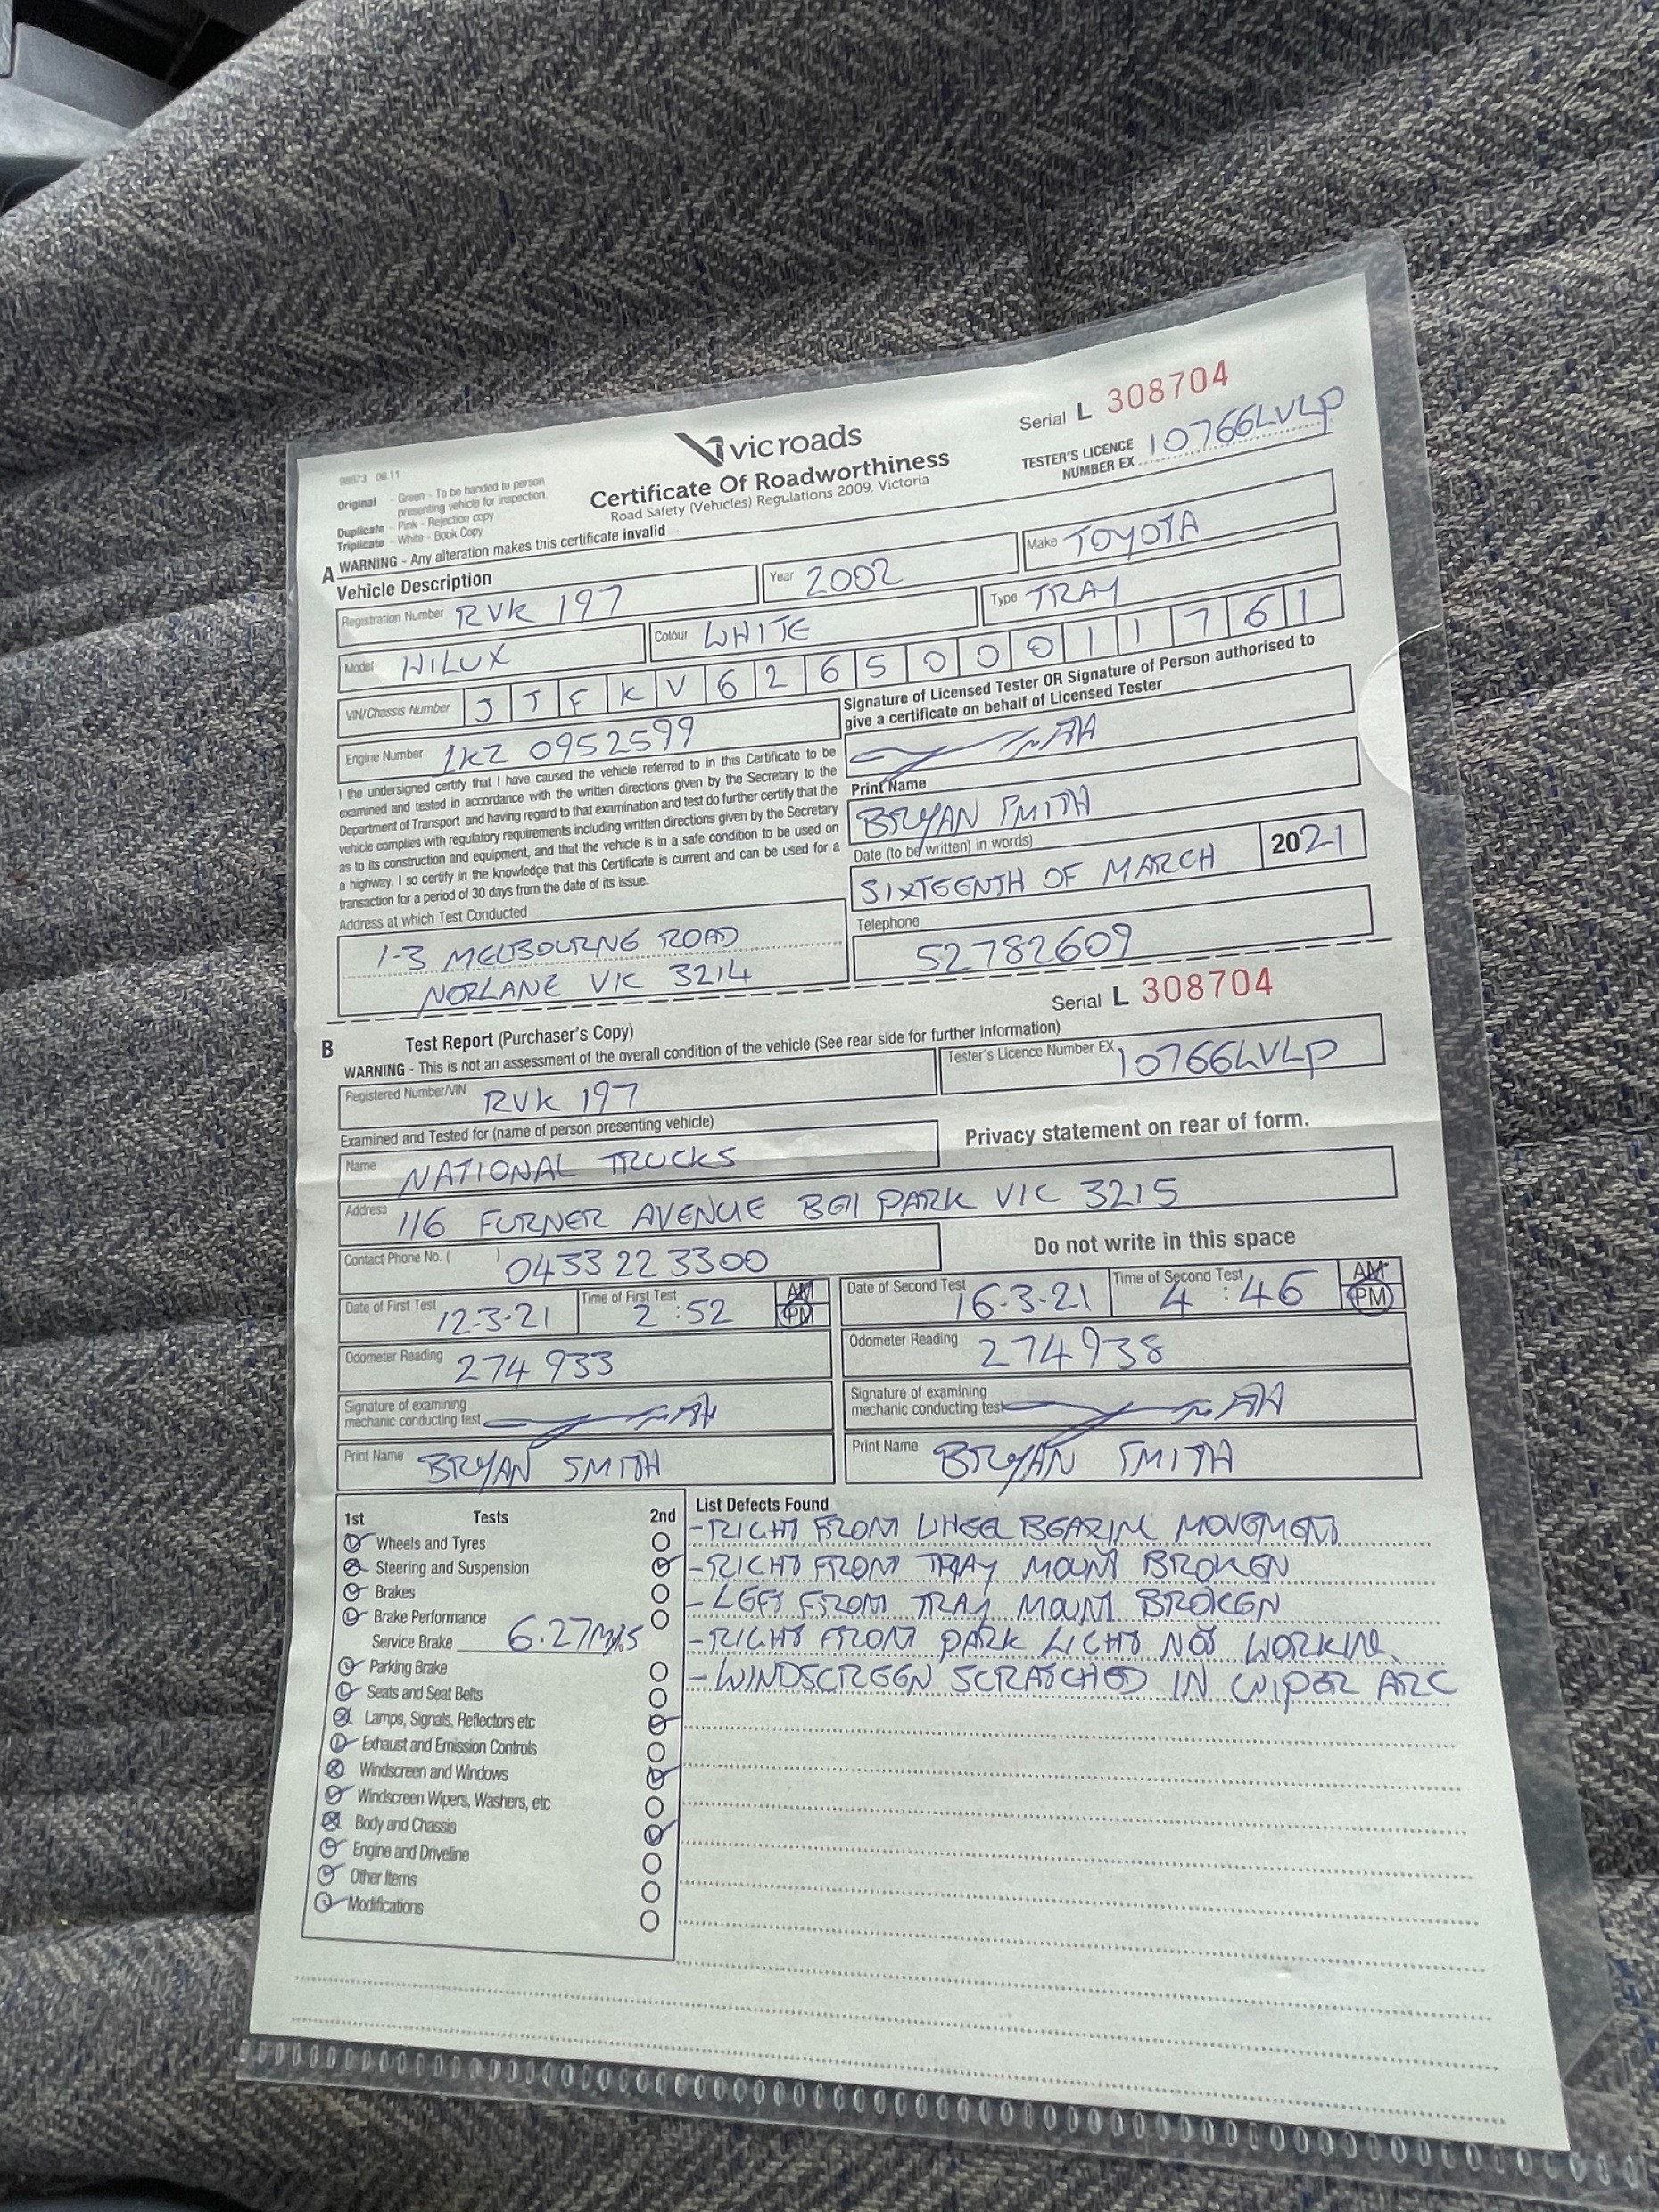 vic roads
Certificate Of Roadworthiness
Road Safety (Vehicles) Regulations 2009, Victoria
Serial L 308704
TESTER'S LICENCE NUMBER EX 10766LVLP
98673 06.11
Original - Green - To be handed to person
presenting vehicle for inspection.
Duplicate - Pink - Rejection copy
Triplicate - White - Book Copy
A WARNING - Any alteration makes this certificate invalid
Vehicle Description
Registration Number RVK 197 Year 2002 Make TOYOTA
Model HILUX Colour WHITE Type TRAY
VIN/Chassis Number J T F K V 6 2 6 5 0 0 0 1 1 7 6 1
Engine Number 1KZ 0952599
I the undersigned certify that I have caused the vehicle referred to in this Certificate to be
examined and tested in accordance with the written directions given by the Secretary to the
Department of Transport and having regard to that examination and test do further certify that the
vehicle complies with regulatory requirements including written directions given by the Secretary
as to its construction and equipment, and that the vehicle is in a safe condition to be used on
a highway. I so certify in the knowledge that this Certificate is current and can be used for a
transaction for a period of 30 days from the date of its issue.
Signature of Licensed Tester OR Signature of Person authorised to
give a certificate on behalf of Licensed Tester
Print Name
BRYAN SMITH
Date (to be written) in words)
SIXTEENTH OF MARCH 2021
Address at which Test Conducted
1-3 MELBOURNE ROAD
NORLANE VIC 3214
Telephone
52782609
Serial L 308704
B Test Report (Purchaser's Copy)
WARNING - This is not an assessment of the overall condition of the vehicle (See rear side for further information)
Registered Number/VIN RVK 197 Tester's Licence Number EX 10766LVLP
Examined and Tested for (name of person presenting vehicle)
Privacy statement on rear of form.
Name NATIONAL TRUCKS
Address 116 FURNER AVENUE BELL PARK VIC 3215
Contact Phone No. ( ) 0433 22 3300
Do not write in this space
Date of First Test 12-3-21 Time of First Test 2:52 AM PM
Date of Second Test 16-3-21 Time of Second Test 4:46 AM PM
Odometer Reading 274 933
Odometer Reading 274938
Signature of examining
mechanic conducting test
Signature of examining
mechanic conducting test
Print Name BRYAN SMITH
Print Name BRYAN SMITH
1st Tests 2nd
Wheels and Tyres
Steering and Suspension
Brakes
Brake Performance
Service Brake
Parking Brake
Seats and Seat Belts
Lamps, Signals, Reflectors etc
Exhaust and Emission Controls
Windscreen and Windows
Windscreen Wipers, Washers, etc
Body and Chassis
Engine and Driveline
Other Items
Modifications
List Defects Found
-RIGHT FRONT WHEEL BEARING MOVEMENT
-RIGHT FRONT TRAY MOUNT BROKEN
-LEFT FRONT TRAY MOUNT BROKEN
-RIGHT FRONT PARK LIGHT NOT WORKING
-WINDSCREEN SCRATCHED IN WIPER ARC